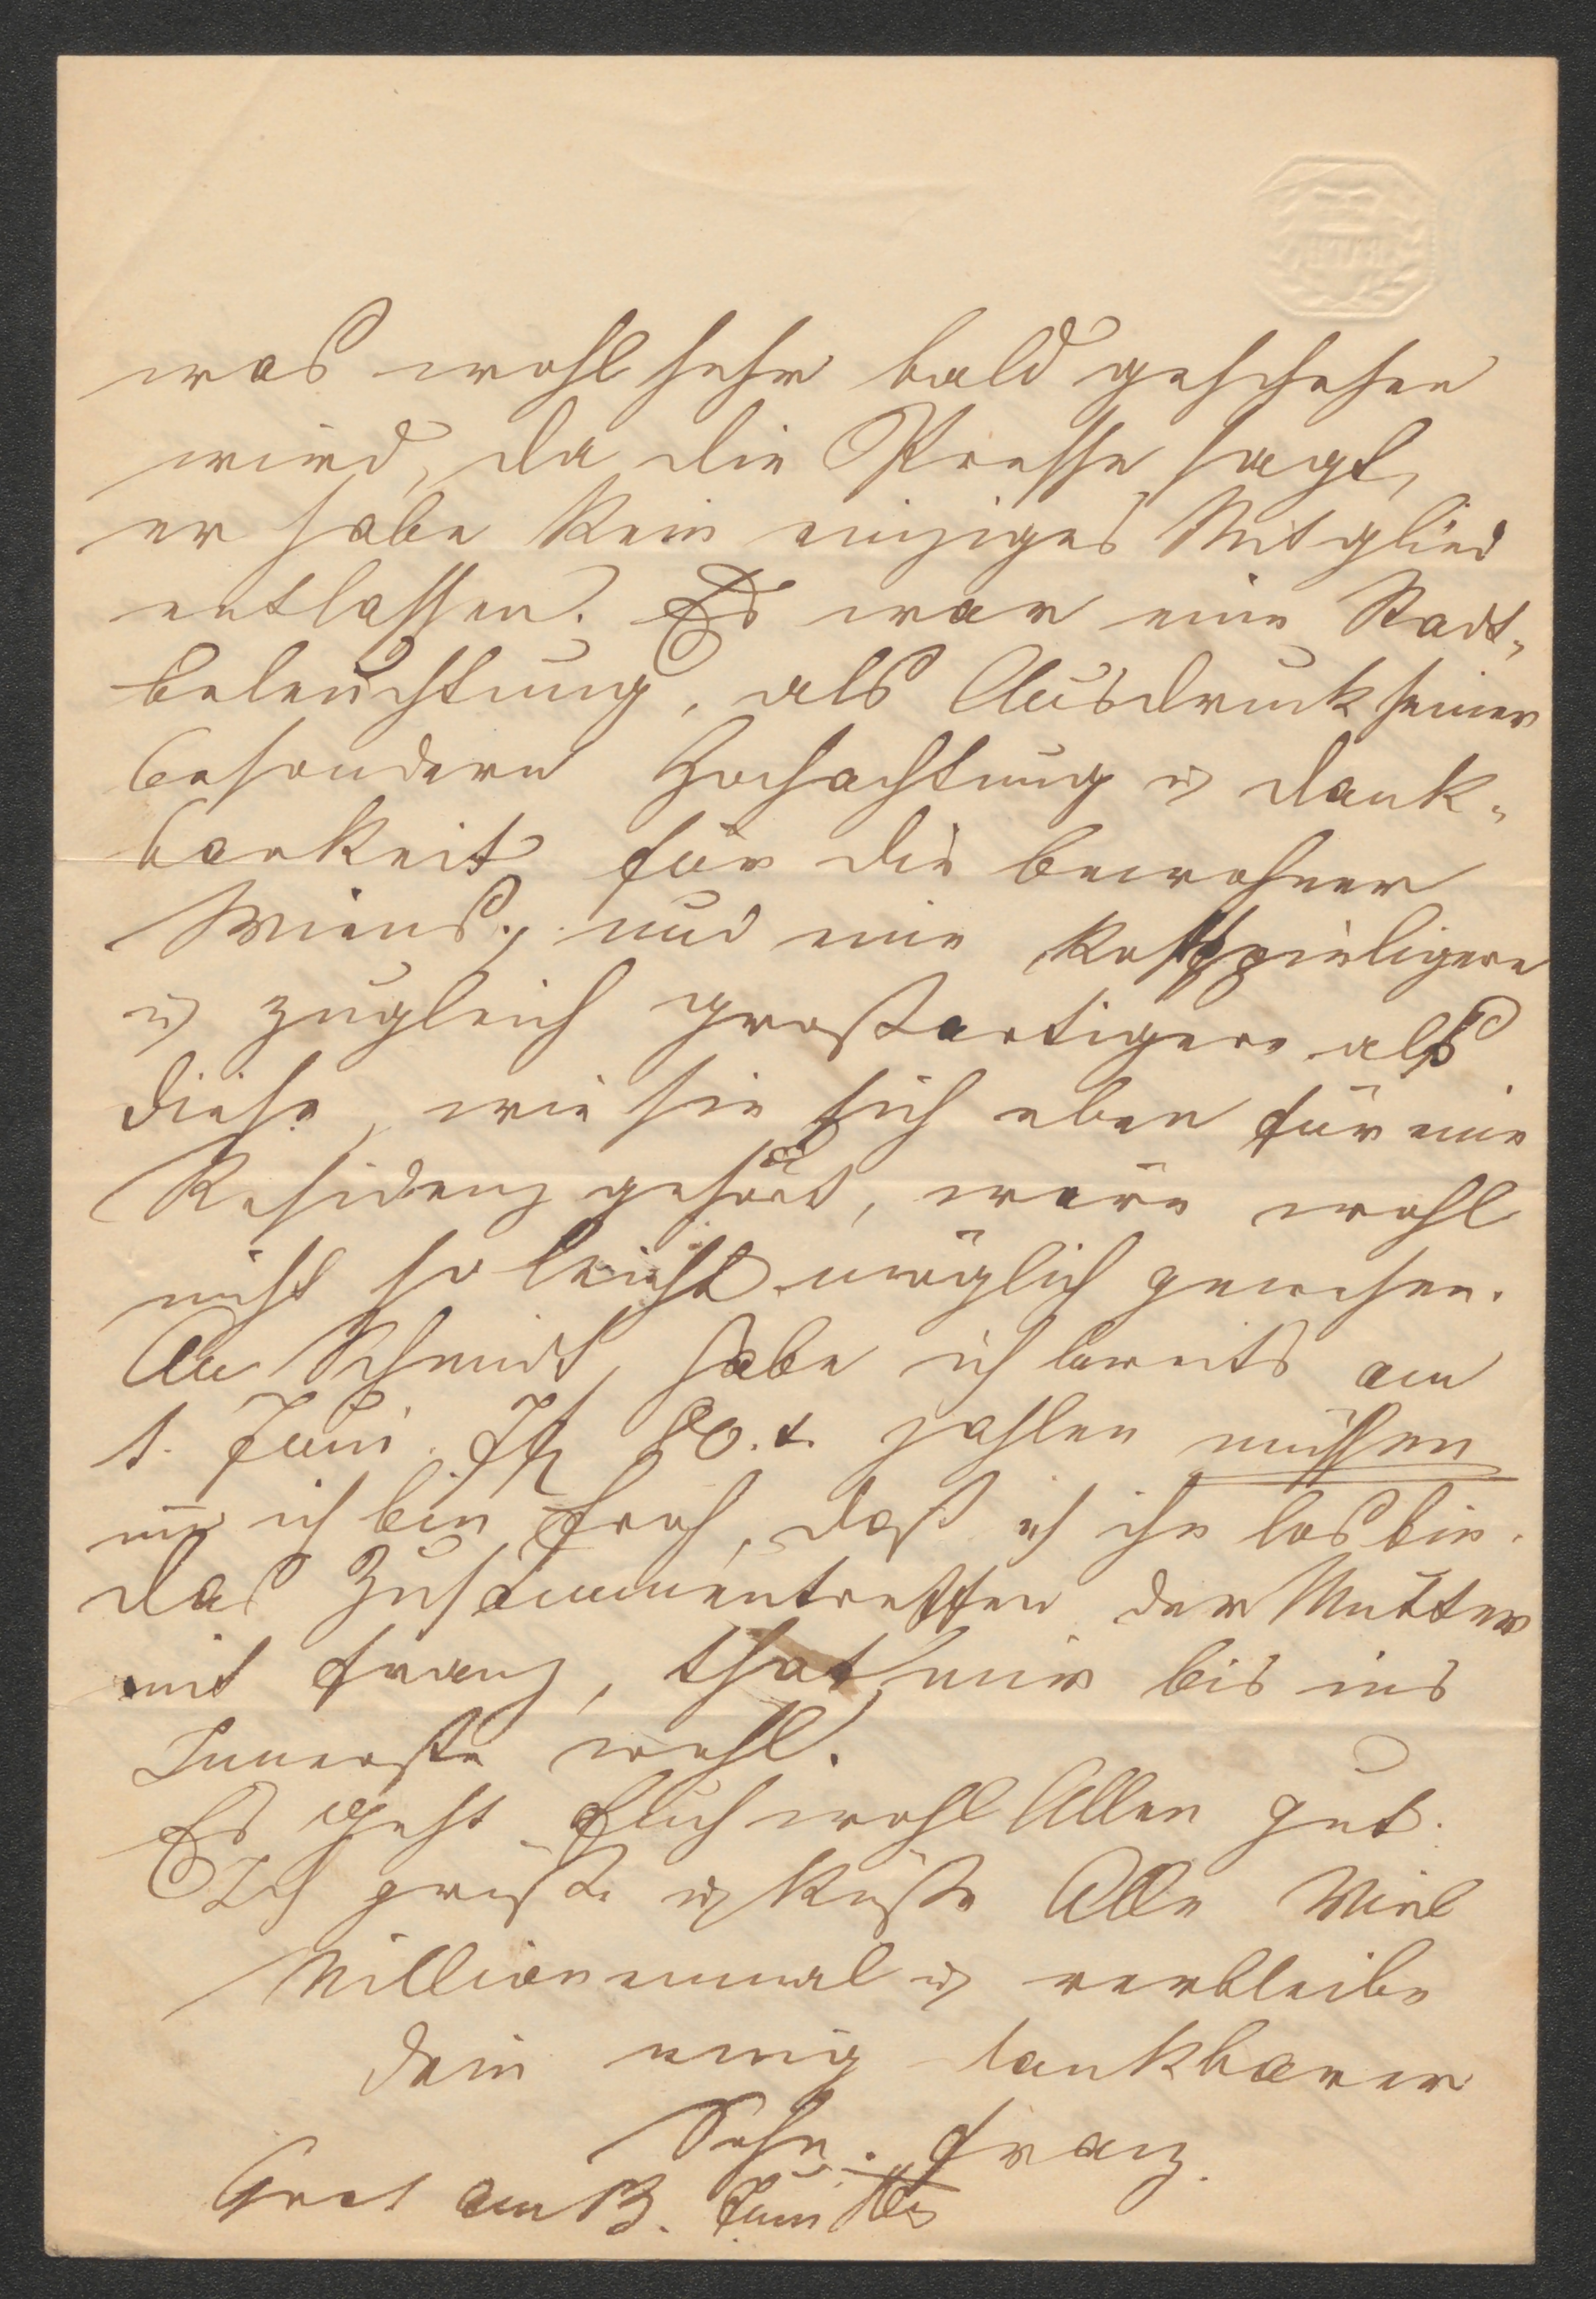 was wohl sehr bald geschehen
wird, da die Presse sagt,
er habe kein einziges Mitglied
entlassen. Es war eine Stadt-
beleuchtung, als Ausdruck seiner
besondern Hochachtung u Dank-
barkeit für die Bewohner
Wiens, und eine kostspieligere
u zugleich großartigere als
diese, wie sie sich eben für eine
Residenz gehört, wäre wohl
nicht so leicht möglich gewesen.
An Schmidt, habe ich bereits am
1. Juni zahlen müssen
ich bin froh, daß ich ihn los bin.
das Zusammentreffen der Mutter
mit Franz, that mir bis ins
Innerste wohl.
Es geht Euch wohl Allen gut.
Ich grüße u küße Alle Viel
Millionenmal u verbleibe
Dein ewig dankbarer
Sohn. Franz.
am 13. Juni